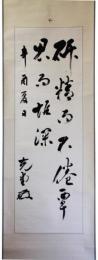 研精而不倦覃
思而加深
辛酉夏日